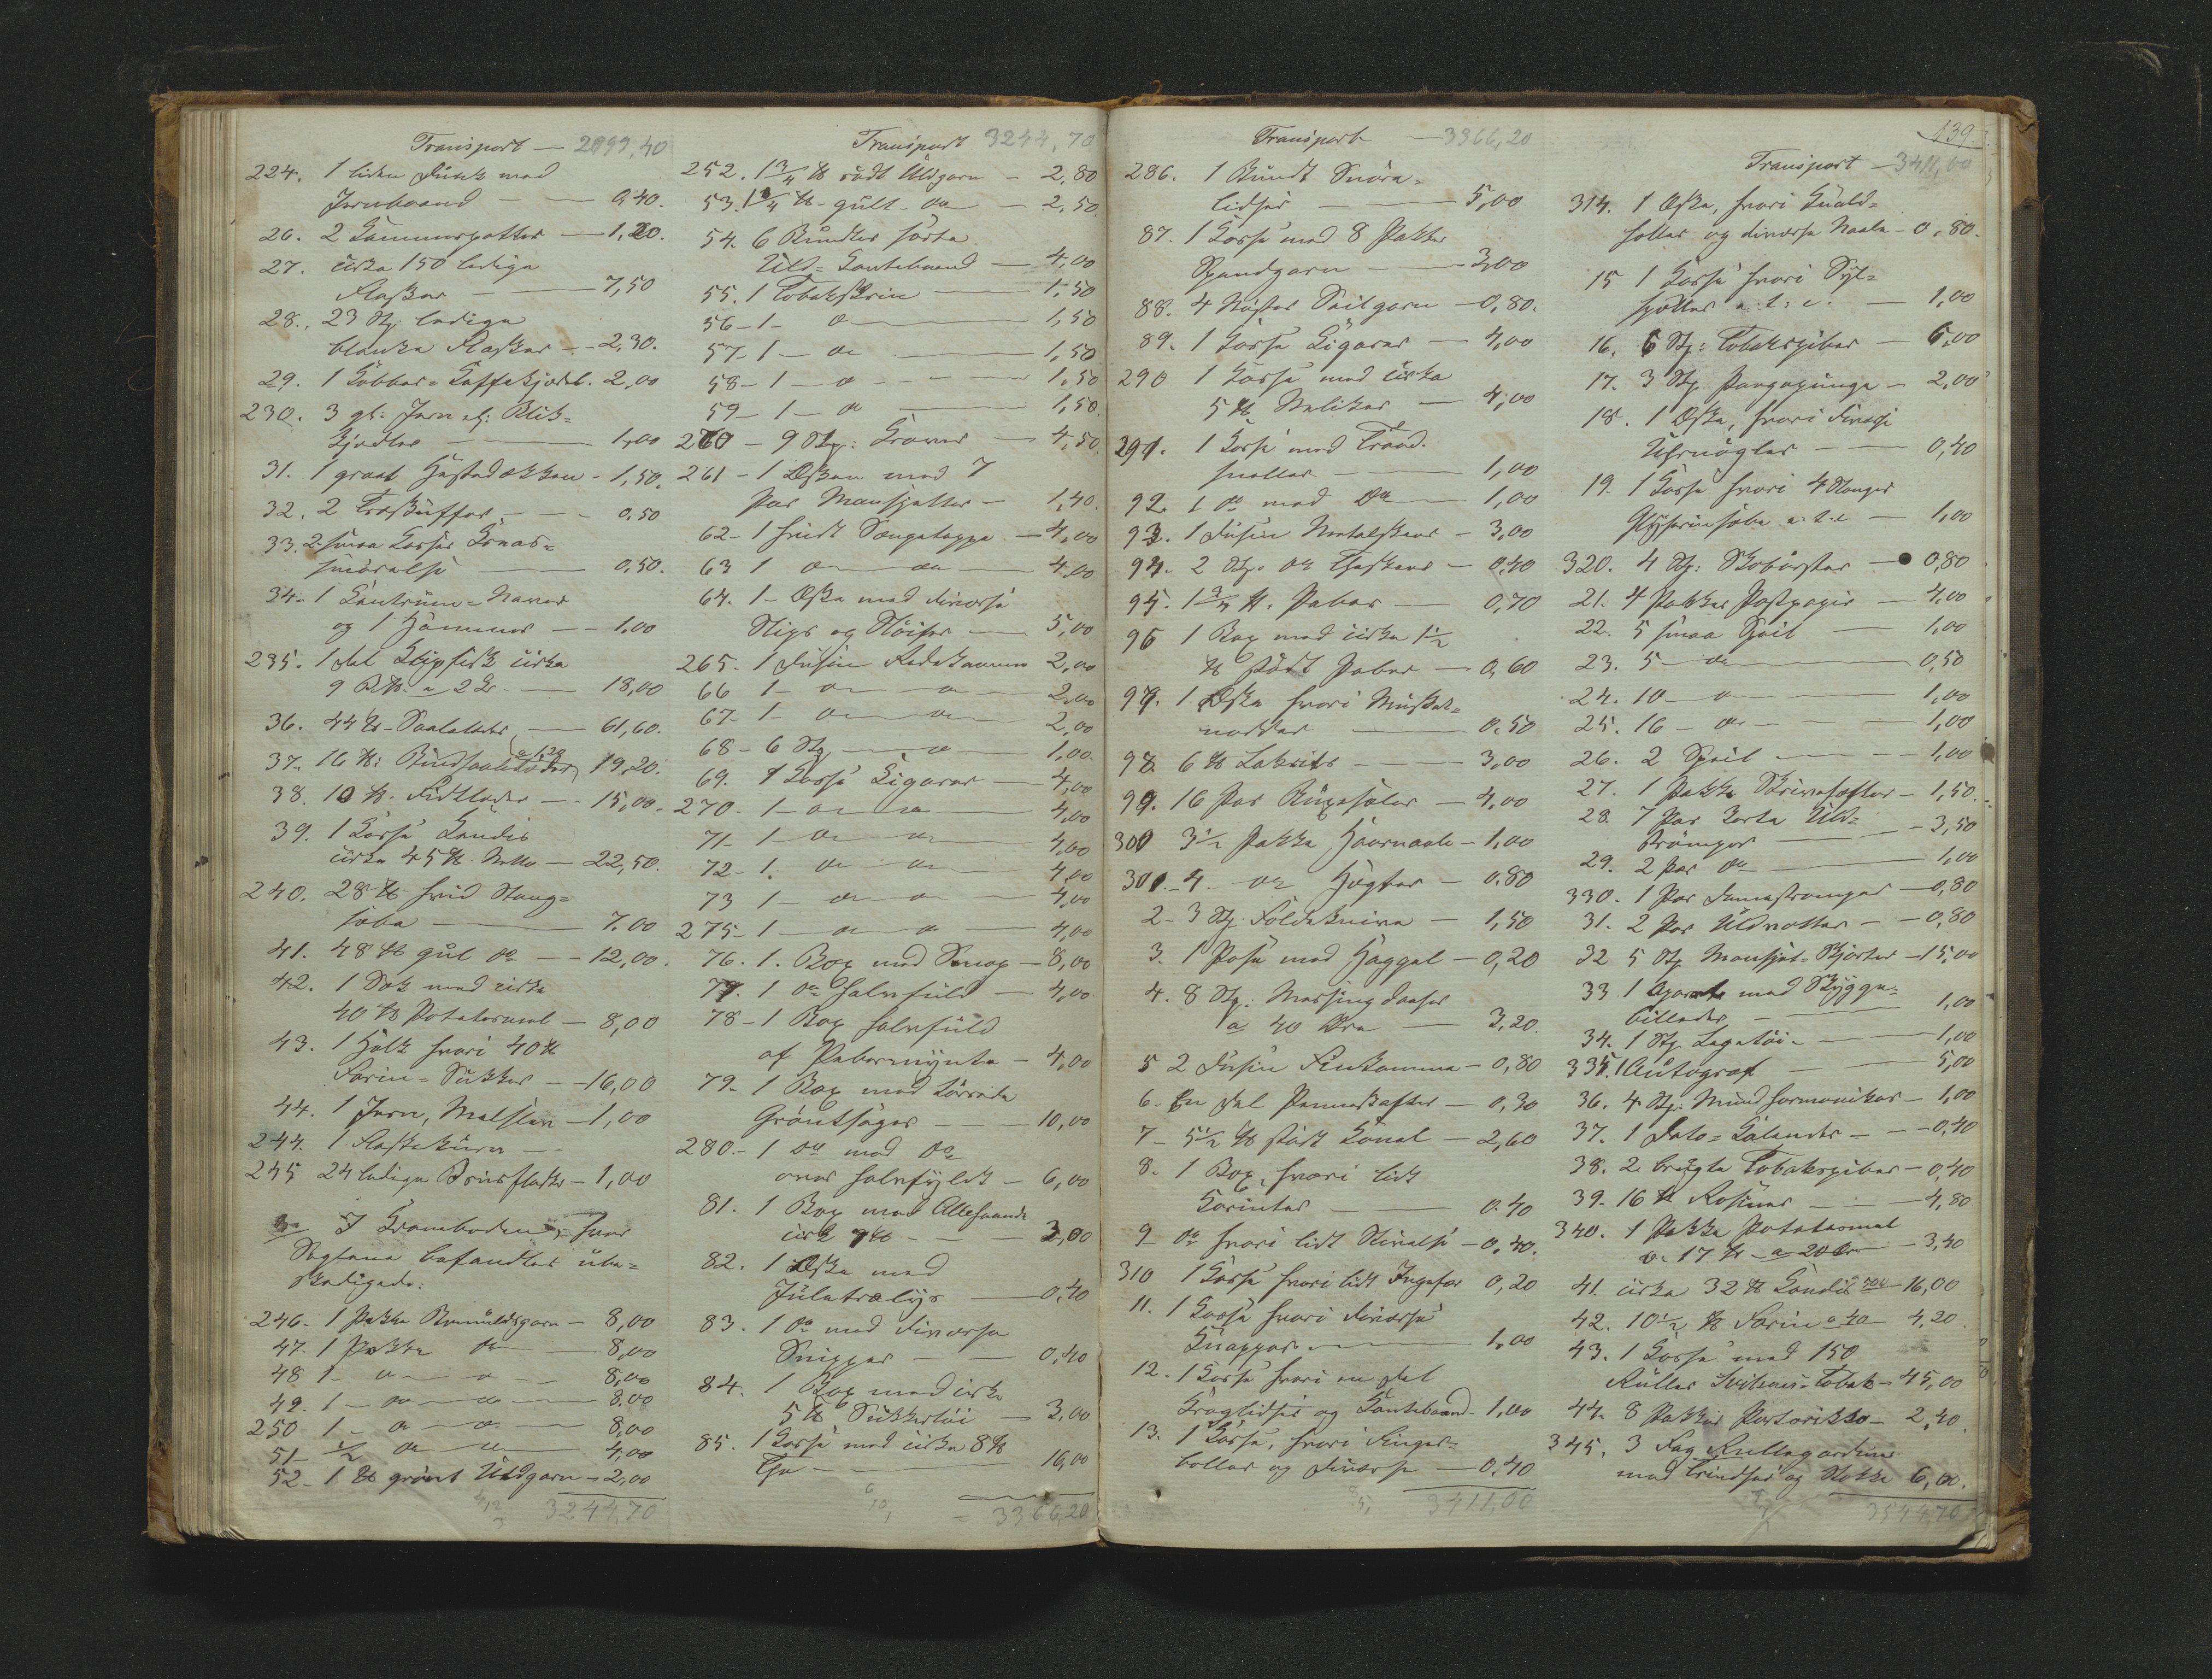 Transport — 2099,40
224. 1 liden Dunk med
Jernbaand — 0,40.
26. 2 Kammerpotter — 1,20.
27. cirka 150 ledige
Flasker — 7,50
28. 23 Stk. ledige
blanke Flasker — 2,30.
29. 1 Kobber-Kaffekjedel. 2,00
230. 3 gl. Jern og Blik-
Kjedler — 1,00
31. 1 graat Hestedækken - 1,50.
32. 2 Træskuffer — 0,50
33. 2 smaa Kasser
smörelse — 0,50.
34. 1 Naver
og 1 Hammer — 1,00
235. 1 del Klipfisk cirka
9 — 18,00
36. 44 ℔ Saaleläder — 61,60.
37. 16 ℔: Bindsaaleläder a 1,20 19,20.
38. 10 ℔. Fedtläder — 15,00.
39. 1 Kasse Kandis
cirka 45 ℔ Netto — 22,50.
240. 28 ℔ hvid Stang-
säbe — 7.00
41. 48 ℔ gul do — 12,00.
42. 1 Sæk med cirka
40 ℔ Potetesmel — 8,00
43. 1 Holk hvori 40 ℔
Farin-Sukker — 16,00
44. 1 Jern, — 1,00
244. 1 Flaskekurv —
245 24 ledige Brusflasker — 1,00
I Kramboden, hvor
Seglene befandtes ube-
skadigede:
246. 1 Pakke Bomuldsgarn — 8,00
47. 1 Pakke do 8,00
48 1 - do — do — 8,00
49. 1 — do — do — 8.00
250 1 - do — do — 8,00
51 - ½ do — do 4,00
52 - 1 ℔ grönt Uldgarn - 2,00
3244,70
Transport 3244,70
252. 1¾ ℔ rödt Uldgarn — 2,80
53. ℔ gult do — 2,50.
54. 6 Bundter sorte
Uld-Kantebaand — 4,00
55. 1 Tobakskrin — 1,50
56 - 1 - do — 1,50
57 - 1 - do — 1,50
58 - 1 - do — 1,50
59 - 1 - do — 1,50.
260 - 9 Stkr. Kraver — 4,50.
261 - 1 Æsken med 7
Par Mansjetter — 1,40.
62 - 1 hvidt Sængeteppe — 4,00
63 1 do — do — 4,00
64. 1 - Æske med diverse
Slips og Slöifer — 5,00
265. 1 Dusin Redekamme 2,00
66 1 - do — do 2,00
67 - 1 - do — do 2,00
68 - 6 Stk — do — 1,00.
69. 1 Kasse Sigarer — 4,00
270. 1 - do — do 4,00
71 - 1 do do 4,00
72 - 1. do do 4,00
73 1 - do do — 4,00
275 - 1 - do do 4,00
76. 1. Box med Senop — 8,00
77. 1 do halvfuld — 4,00
78 - 1 Box halvfuld
af Pebermynte — 4,00
79 - 1 Box med törrede
Gröntsäger — 10,00
280 - 1 do med do
over halvfyldt — 6,00
81. 1 Box med Allehaande
cirk ℔ — 3,00
82. 1 Æske med
Juletrælys — 0,40
83. 1 do med diverse
Snipper — 0,40
84. 1 Box med cirka
5 ℔ Sukkertöi — 3,00
85. 1 Kasse med cirka 8 ℔
The — 16,00
= 3366,20
Transport — 3366,20
286. 1 Bundt Snöre-
lidser — 5,00
87. 1 Kasse med 8 Pakker
Spundgarn — 3,00
88. 4 Nöster Seilgarn — 0,80.
89. 1 Kasse Sigarer — 4,00
290 1 Kasse med cirka
5 ℔ Neliker — 4,00
291. 1 Kasse med Traad-
sneller — 1,00
92. 1 do med do — 1,00
93. 1 Dusin Metalskeer — 3,00
94. 2 Stk. do Theskeer — 0,40
95. 1¾ ℔. Peber — 0,70
96 1 Box med cirka 1½
℔ stödt Peber — 0,60
97. 1 Æske hvori Muskat-
nödder — 0.50
98. 6 ℔ Lakrits — 3,00
99. 16 Par — 4,00
300 3½ Pakke Haarnaale — 1,00
301. 4 - do Hegter — 0.80
2 - 3 Stk. Foldeknive — 1,50
3. 1 Pose med Haggel — 0,20
4. 8 Stk. Messingdaaser
a 40 Øre — 3,20.
5 2 Dusin Finkamme — 0,80
6. En del Penneskafter — 0,30
7 - 5½ ℔ stödt Kanel — 2,60
8. 1 Box, hvori lidt
Korinter — 0.40
9 do hvori lidt Stivelse — 0,40.
310 1 Kasse hvori lidt Ingefær 0,20
11. 1 Kasse hvori diverse
Knapper — 1,00
12. 1 Kasse hvori en del
Kraglidser og Kantebaand - 1,00
13. 1 Kasse, hvori Finger-
böller og diverse — 0,40
3411,00
139
Transport — 3411,00
314. 1 Æske, hvori
og diverse Naale — 0,80.
15 1 Kasse hvori Syl-
a. t. c. — 1,00
16. 6 Stk: Tobakspiber — 6,00
17. 3 Stk. Pengepunge — 2,00
18. 1 Æske, hvori diverse
Uhrnögler — 0,40
19. 1 Kasse hvori 4 Stanger
Glyserinsæbe a. t. c — 1,00
320. 4 Stk: Skobörster — 0,80
21. 4 Pakker Postpapir — 4,00
22. 5 smaa Speil — 1,00
23. 5 — do — 0,50
24. 10 — do — 1,00
25. 16 — do — 1,00
26. 2 Speil — 1,00
27. 1 Pakke Skrivehefter — 1,50.
28. 7 Par korte Uld-
strömper — 3,50
29. 2 Par do — 1,00
330. 1 Par Damestrømper — 0,80
31. 2 Par Uldvotter — 0,80
32 5 Stk Mansjet-Skjorter — 15,00
33. 1 Aparat med Skygge-
billeder — 1,00
34. 1 Stk. Legetöi — 1,00
335. 1 Autograf — 5,00
36. 4 Stk: Mundharmonikaer — 1,00
37. 1 Dato-Kalender — 0,40
38. 2 brugte Tobakspiber — 0,40
39. 16 ℔ Rosiner — 4,80
340. 1 Pakke Potetesmel
v. 17 ℔ a 20 Øre — 3,40
41. cirka 32 ℔ Kandis — 16,00
42. 10½ ℔ Farin a 40 4,20.
43. 1 Kasse med 150
Ruller Svitzens-Tobak — 45,00
44. 8 Pakker Portorikko — 2,40.
345. 3 Fag Rullegardiner
med Trindser og Stokke 6,00.
3544,70